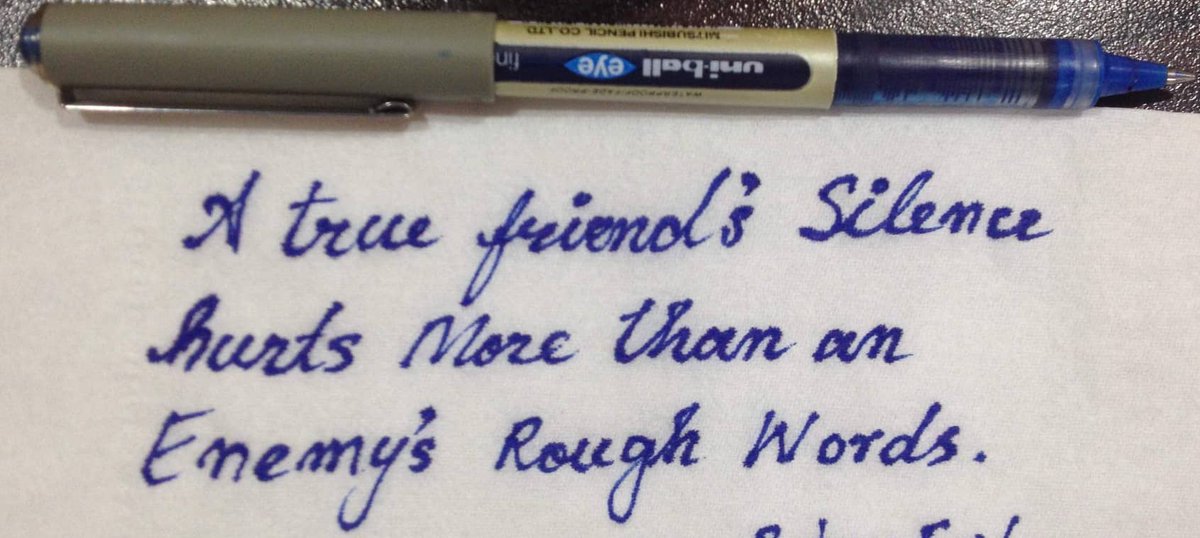 MITSUBISHI PENCIL CO.LTD
uni-ball eye fin
WATERPROOF/FADE-PROOF
A true friend's Silence
hurts More than an
Enemy's Rough Words.